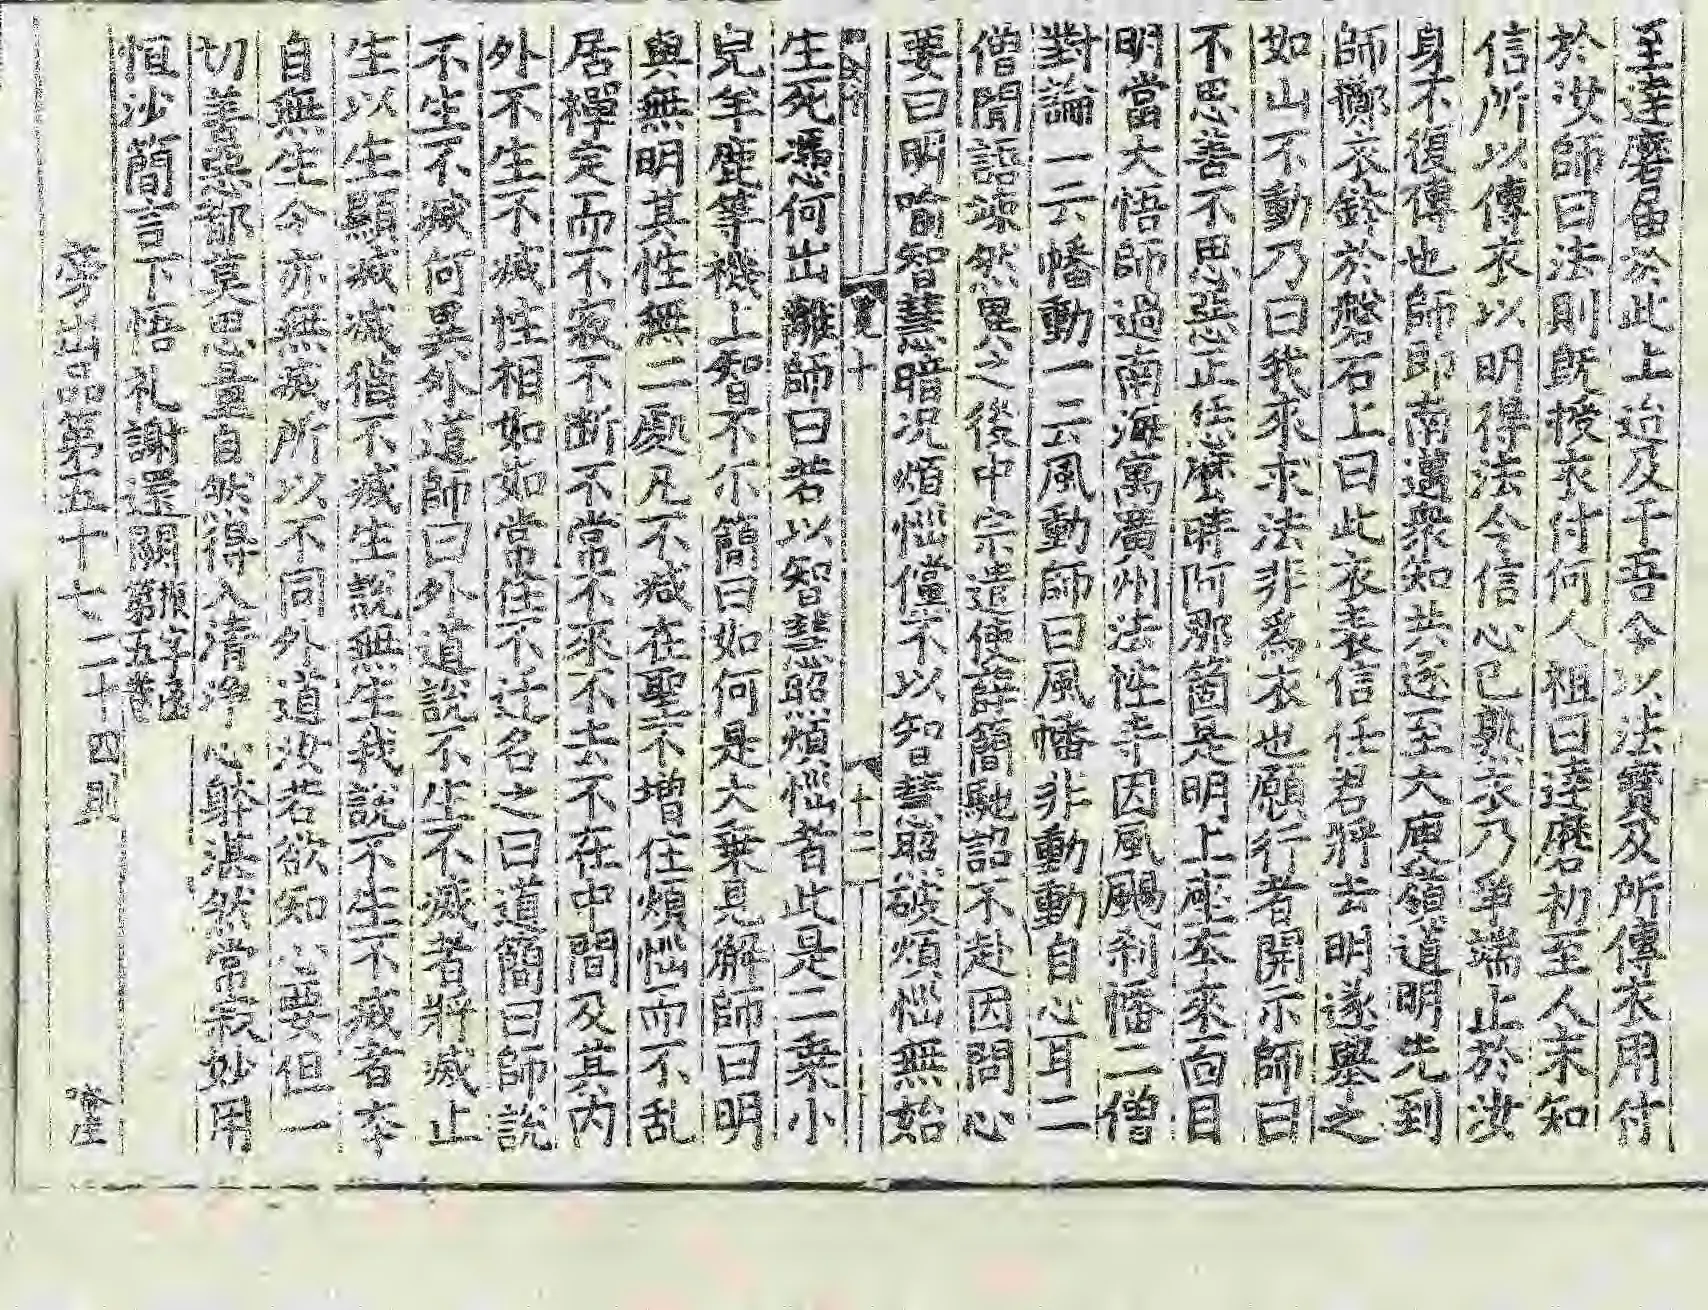 至達磨屆於此土迨及于吾今以法寶及所傳衣用付
於汝師曰法則旣授衣付何人祖曰達磨初至人未知
信所以傳衣以明得法今信心已熟衣乃爭端止於汝
身不復傳也師即南邁衆知共逐至大庾嶺道明先到
師擲衣鉢於盤石上曰此衣表信任君將去明遂擧之
如山不動乃曰我來求法非爲衣也願行者開示師曰
不思善不思惡正任麽時阿那箇是明上座本來面目
明當大悟師過南海寓廣州法性寺因風颺刹幡二僧
對論一云幡動一云風動師曰風幡非動動自心耳二
僧聞語竦然異之後中宗遣使薛簡馳詔不赴因問心
要曰明喻智慧暗况煩惱儻不以知慧照破煩惱無始
十 十二
生死憑何出離師曰若以智慧照煩惱者此是二乘小
兒羊鹿等機上智不尒簡曰如何是大乘見解師曰明
與無明其性無二處凡不减在聖不增住煩惱而不乱
居禪定而不寂不断不常不來不去不在中間及其内
外不生不滅性相如如常住不迁名之曰道簡曰師說
不生不滅何異外道師曰外道說不生不滅者將滅止
生以生顯滅滅猶不滅生說無生我說不生不滅者本
自無生今亦無滅所以不同外道汝若欲知心要但一
切善惡都莫思量自然得入清淨心躰湛然常寂妙用
恒沙簡言下悟礼謝還闕 第五卷
旁出品第五十七二十四則